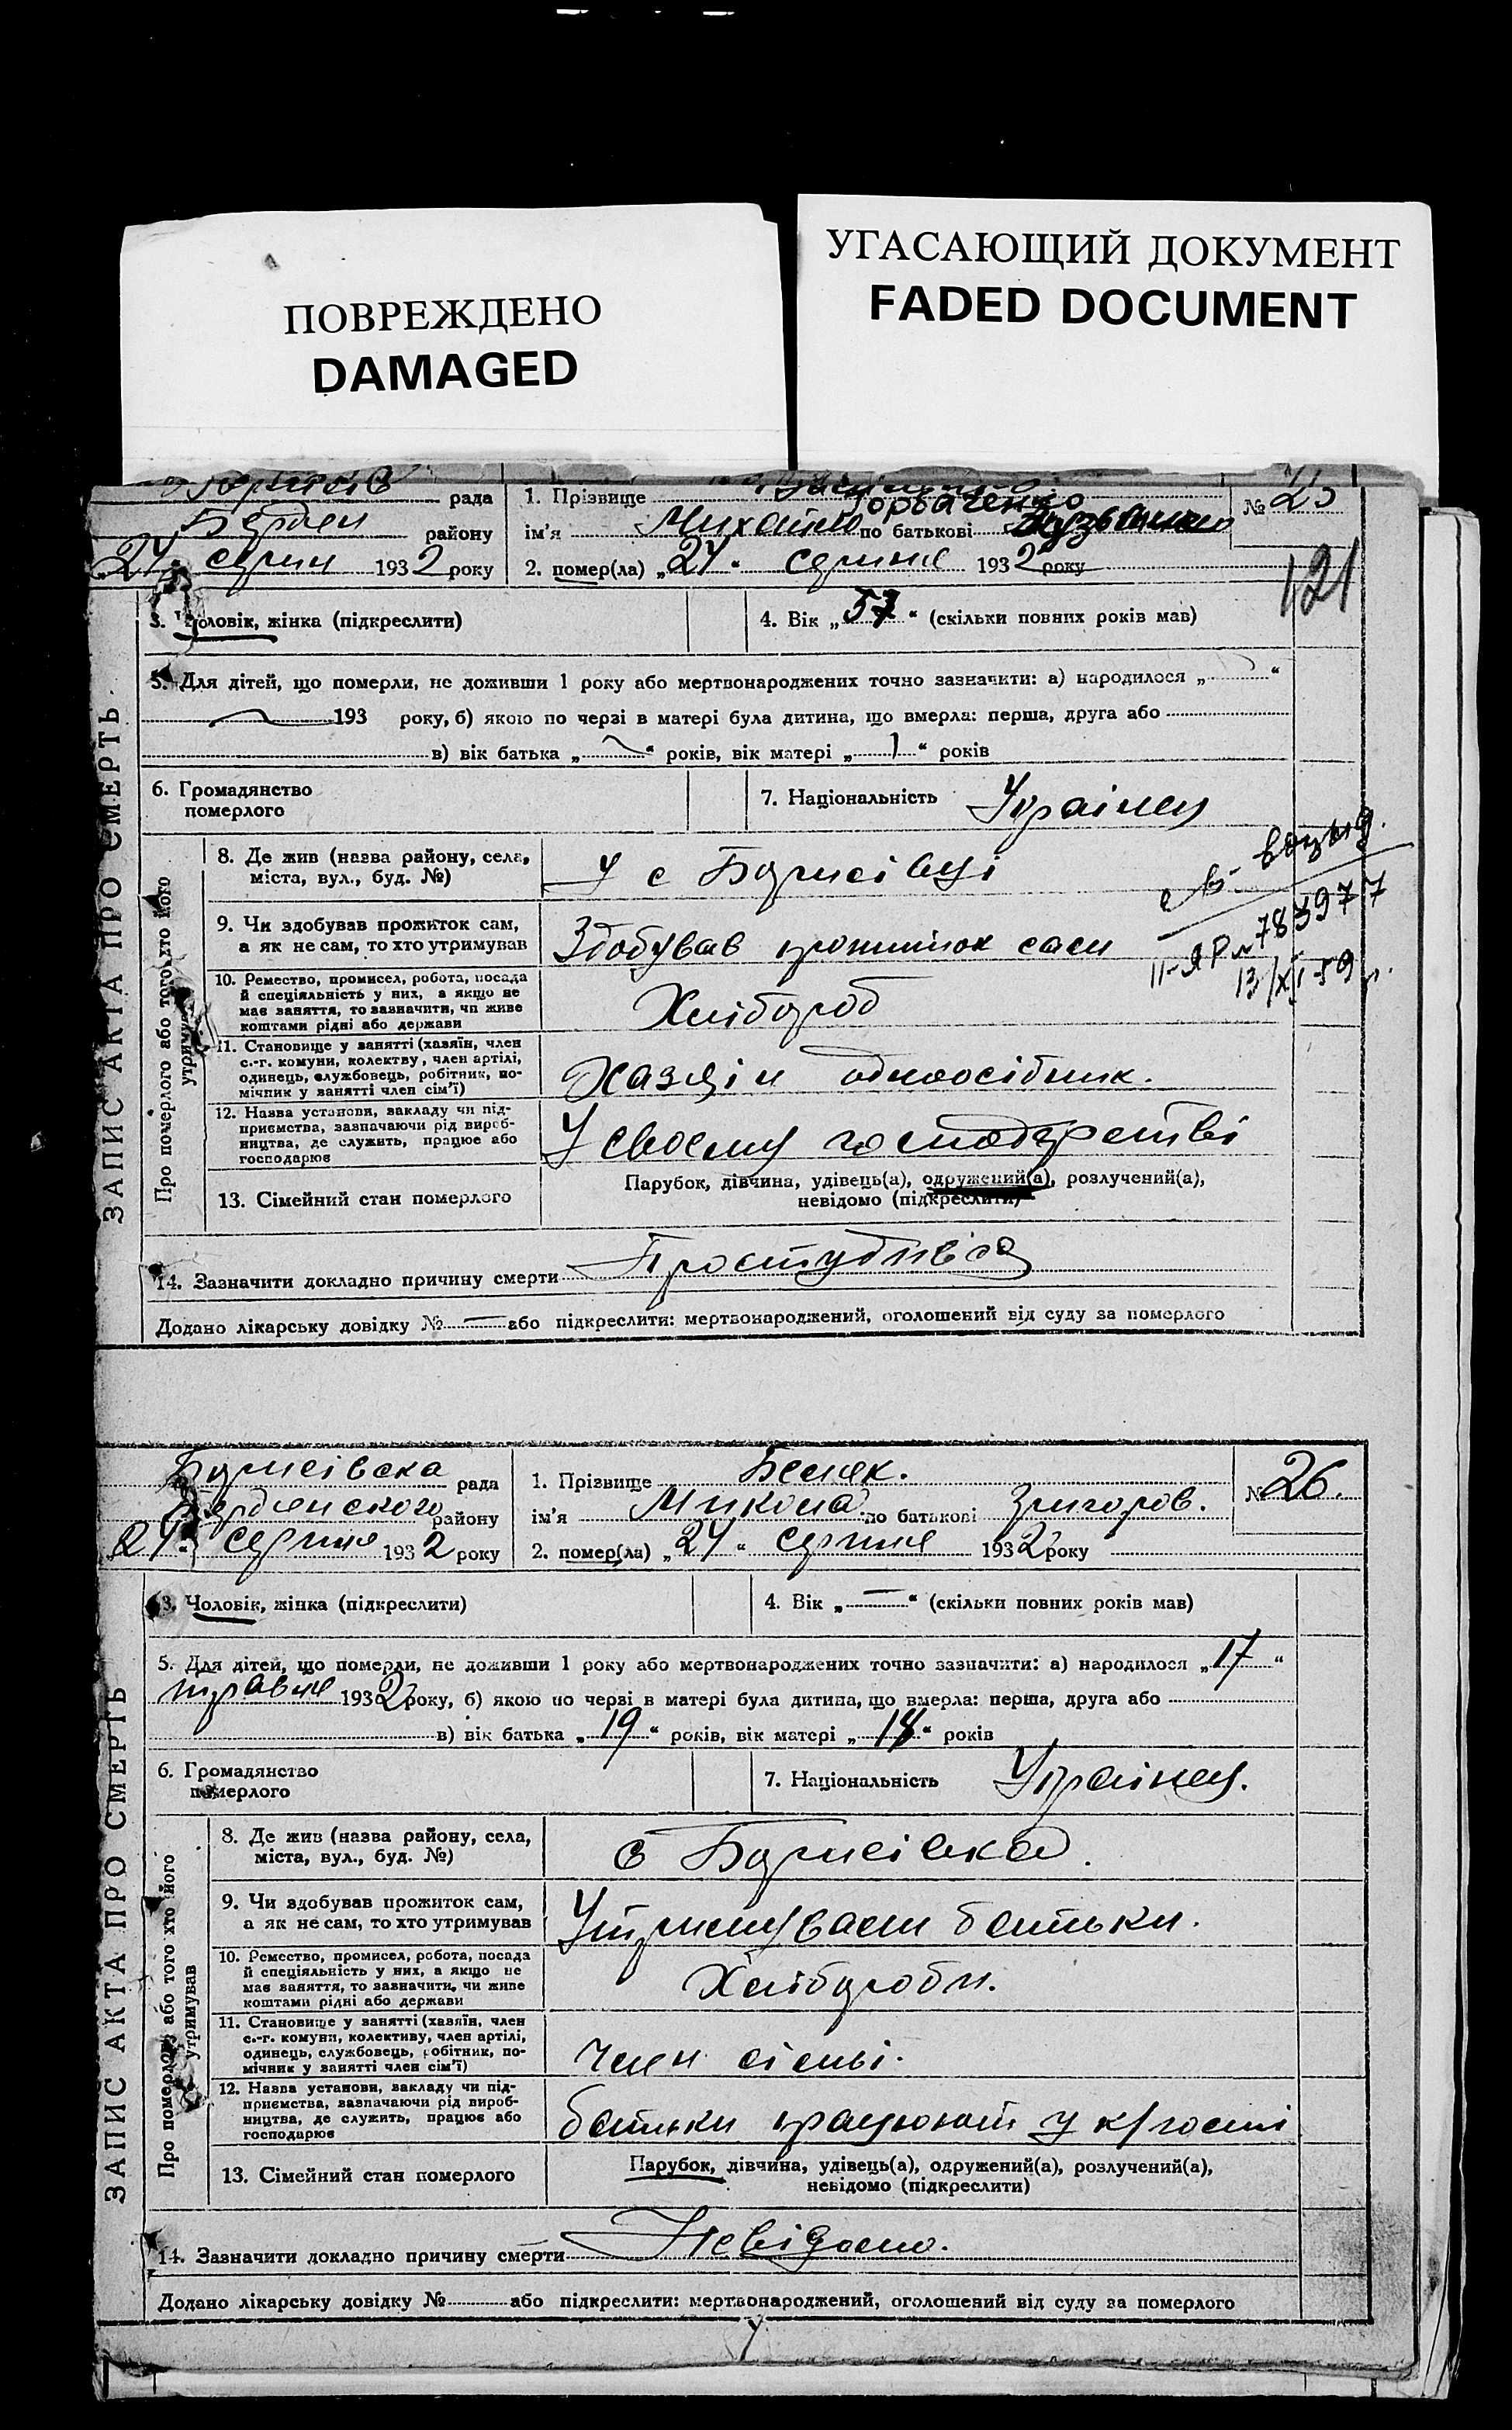 ПОВРЕЖДЕНО
DAMAGED
УГАСАЮЩИЙ ДОКУМЕНТ
FADED DOCUMENT
рада
1. Прізвище Горбаченко
№ 25
Бердян району
ім'я Михайло по батькові
24 серпн 1932 року
2. помер(ла) „24" серпня 1932 року
121
3. Чоловік, жінка (підкреслити)
4. Вік „57" (скільки повних років мав)
5. Для дітей, що померли, не доживши 1 року або мертвонароджених точно зазначити: а) народилося „ "
193 року, б) якою по черзі в матері була дитина, що вмерла: перша, друга або
в) вік батька „ " років, вік матері „ " років
6. Громадянство
померлого
7. Національність Українец
ЗАПИС АКТА ПРО СМЕРТЬ
Про померлого або того хто його
утримував
8. Де жив (назва району, села,
міста, вул., буд. №)
У с Борисівці
9. Чи здобував прожиток сам,
а як не сам, то хто утримував
Здобував прожиток сам
II-ЯР № 783977
13/XI-59 г.
10. Ремество, промисел, робота, посада
й спеціяльність у них, а якщо не
має заняття, то зазначити, чи живе
коштами рідні або держави
Хлібороб
11. Становище у занятті (хазяїн, член
с.-г. комуни, колектву, член артілі,
одинець, службовець, робітник, по-
мічник у занятті член сім'ї)
Хазяін одноосібник.
12. Назва установи, закладу чи під-
приємства, зазначаючи рід вироб-
ництва, де служить, працює або
господарює
У своєму господарстві
13. Сімейний стан померлого
Парубок, дівчина, удівець(а), одружений(а), розлучений(а),
невідомо (підкреслити)
14. Зазначити докладно причину смерти Простудився
Додано лікарську довідку № — або підкреслити: мертвонароджений, оголошений від суду за померлого
Борисівска рада
1. Прізвище Бесчек.
№ 26.
Бердянского району
ім'я Микола по батькові Григоров.
24 серпня 1932 року
2. помер(ла) „24" серпня 1932 року
3. Чоловік, жінка (підкреслити)
4. Вік „—" (скільки повних років мав)
5. Для дітей, що померли, не доживши 1 року або мертвонароджених точно зазначити: а) народилося „17"
травня 1932 року, б) якою по черзі в матері була дитина, що вмерла: перша, друга або
в) вік батька „19" років, вік матері „18" років
6. Громадянство
померлого
7. Національність Українец.
ЗАПИС АКТА ПРО СМЕРТЬ
Про померлого або того хто його
утримував
8. Де жив (назва району, села,
міста, вул., буд. №)
с Борисівка.
9. Чи здобував прожиток сам,
а як не сам, то хто утримував
Утримували батьки.
10. Ремество, промисел, робота, посада
й спеціяльність у них, а якщо не
має заняття, то зазначити, чи живе
коштами рідні або держави
Хлібороби.
11. Становище у занятті (хазяїн, член
с.-г. комуни, колективу, член артілі,
одинець, службовець, робітник, по-
мічник у занятті член сім'ї)
член сімьі.
12. Назва установи, закладу чи під-
приємства, зазначаючи рід вироб-
ництва, де служить, працює або
господарює
батьки працюють у к/госпі
13. Сімейний стан померлого
Парубок, дівчина, удівець(а), одружений(а), розлучений(а),
невідомо (підкреслити)
14. Зазначити докладно причину смерти Невідомо.
Додано лікарську довідку № або підкреслити: мертвонароджений, оголошений від суду за померлого